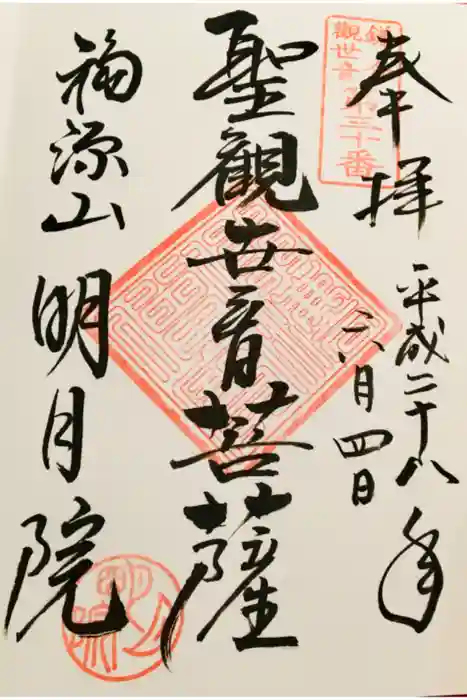 奉拝
平成二十八年
六月四日
聖觀世音菩薩
福源山明月院
観世音第三十番